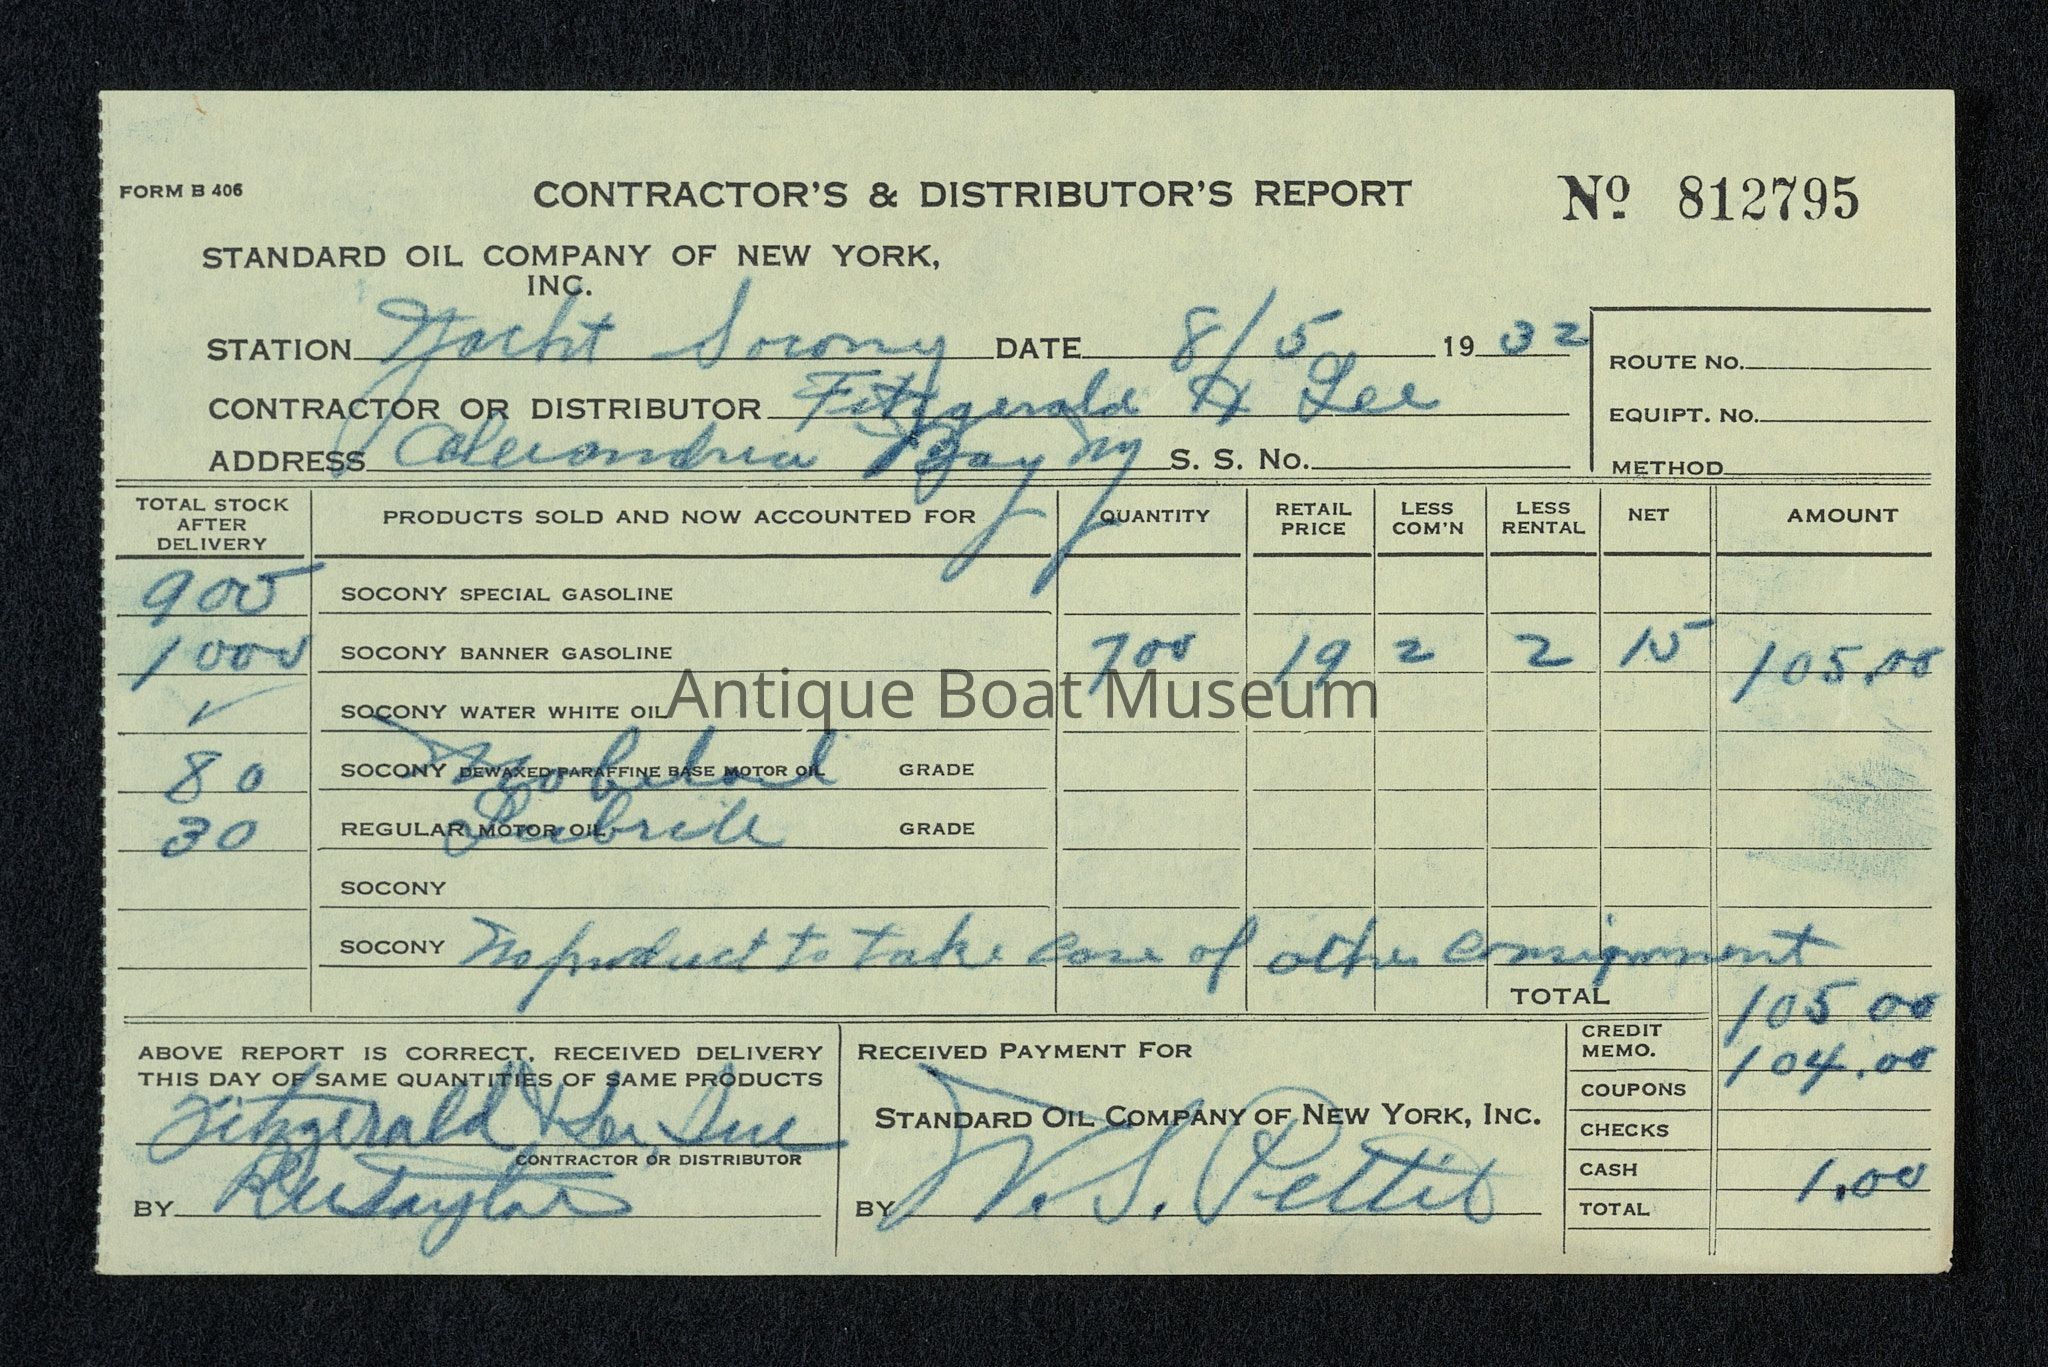 FORM B 406
CONTRACTOR'S & DISTRIBUTOR'S REPORT
Nº 812795
STANDARD OIL COMPANY OF NEW YORK,
INC.
STATION Yacht Socony DATE 8/5 1932
ROUTE NO.
CONTRACTOR OR DISTRIBUTOR Fitzgerald & Lee
EQUIPT. NO.
ADDRESS Alexandria Bay NY S. S. NO.
METHOD
TOTAL STOCK AFTER DELIVERY PRODUCTS SOLD AND NOW ACCOUNTED FOR QUANTITY RETAIL PRICE LESS COM'N LESS RENTAL NET AMOUNT
900 SOCONY SPECIAL GASOLINE
1000 SOCONY BANNER GASOLINE 700 19 2 2 15 105.00
✓ SOCONY WATER WHITE OIL
Antique Boat Museum
80 SOCONY DEWAXED PARAFFINE BASE MOTOR OIL Mobiloil GRADE
30 REGULAR MOTOR OIL Lubrite GRADE
SOCONY
SOCONY No product to take care of other consignment
TOTAL 105 00
ABOVE REPORT IS CORRECT, RECEIVED DELIVERY
THIS DAY OF SAME QUANTITIES OF SAME PRODUCTS
Fitzgerald & Lee, Inc
CONTRACTOR OR DISTRIBUTOR
BY Taylor
RECEIVED PAYMENT FOR
STANDARD OIL COMPANY OF NEW YORK, INC.
BY W. S. Pettit
CREDIT MEMO. 104.00
COUPONS
CHECKS
CASH 1.00
TOTAL